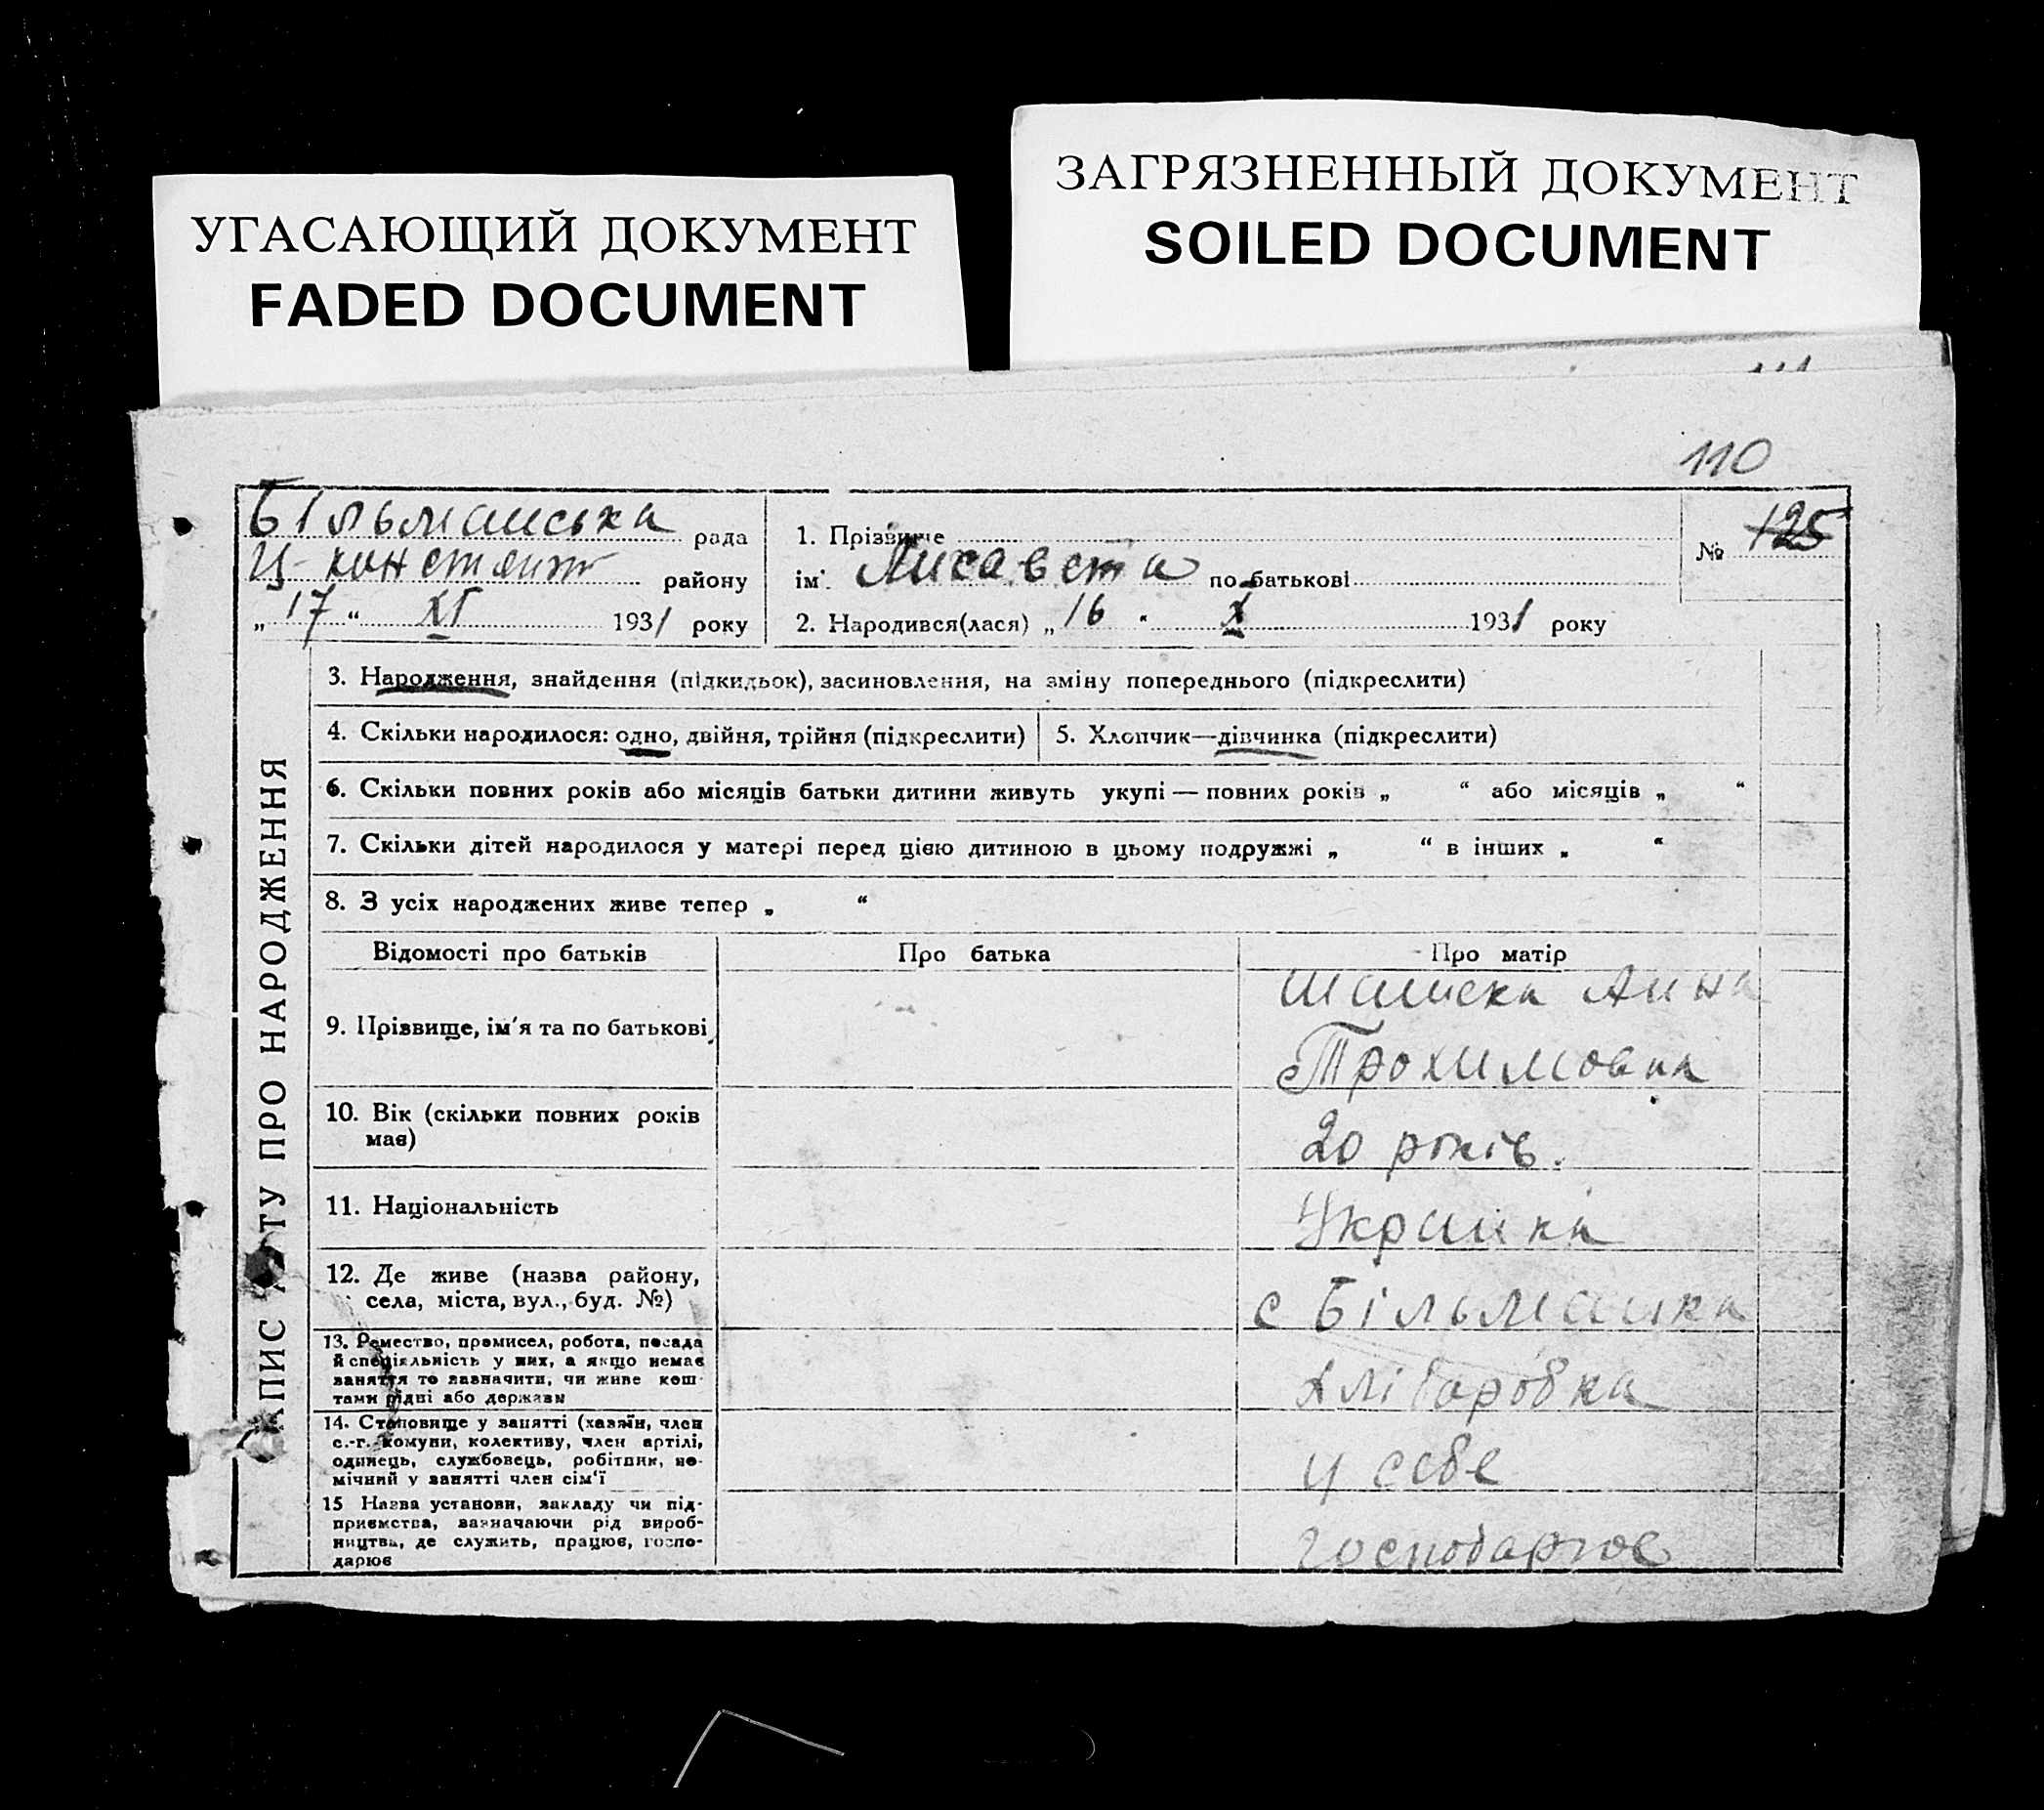 УГАСАЮЩИЙ ДОКУМЕНТ
FADED DOCUMENT
ЗАГРЯЗНЕННЫЙ ДОКУМЕНТ
SOILED DOCUMENT
110
Більманська рада
Ц-констянт району
„17“ XI 1931 року
1. Прізвище
ім'. Лисавета по батькові
2. Народився(лася) „16“ X 1931 року
№ 125
ЗАПИС АКТУ ПРО НАРОДЖЕННЯ
3. Народження, знайдення (підкидьок), засиновлення, на зміну попереднього (підкреслити)
4. Скільки народилося: одно, двійня, трійня (підкреслити)
5. Хлопчик—дівчинка (підкреслити)
6. Скільки повних років або місяців батьки дитини живуть укупі — повних років „ “ або місяців „ “
7. Скільки дітей народилося у матері перед цією дитиною в цьому подружжі „ “ в інших „ “
8. З усіх народжених живе тепер „ “
Відомості про батьків
Про батька
Про матір
9. Прізвище, ім'я та по батькові
Анна
Трохимовна
10. Вік (скільки повних років
має)
20 років.
11. Національність
Украинка
12. Де живе (назва району,
села, міста, вул., буд. №)
с Більманка
13. Ремество, промисел, робота, посада
й спеціяльність у них, а якщо немає
заняття то зазначити, чи живе кош-
тами рідні або держави
хліборобка
14. Становище у занятті (хазяїн, член
с.-г. комуни, колективу, член артілі,
одинець, службовець, робітник, по-
мічний у занятті член сім'ї
у себе
15 Назва установи, закладу чи під-
приємства, зазначаючи рід вироб-
ництва, де служить, працює, госпо-
дарює
господарює